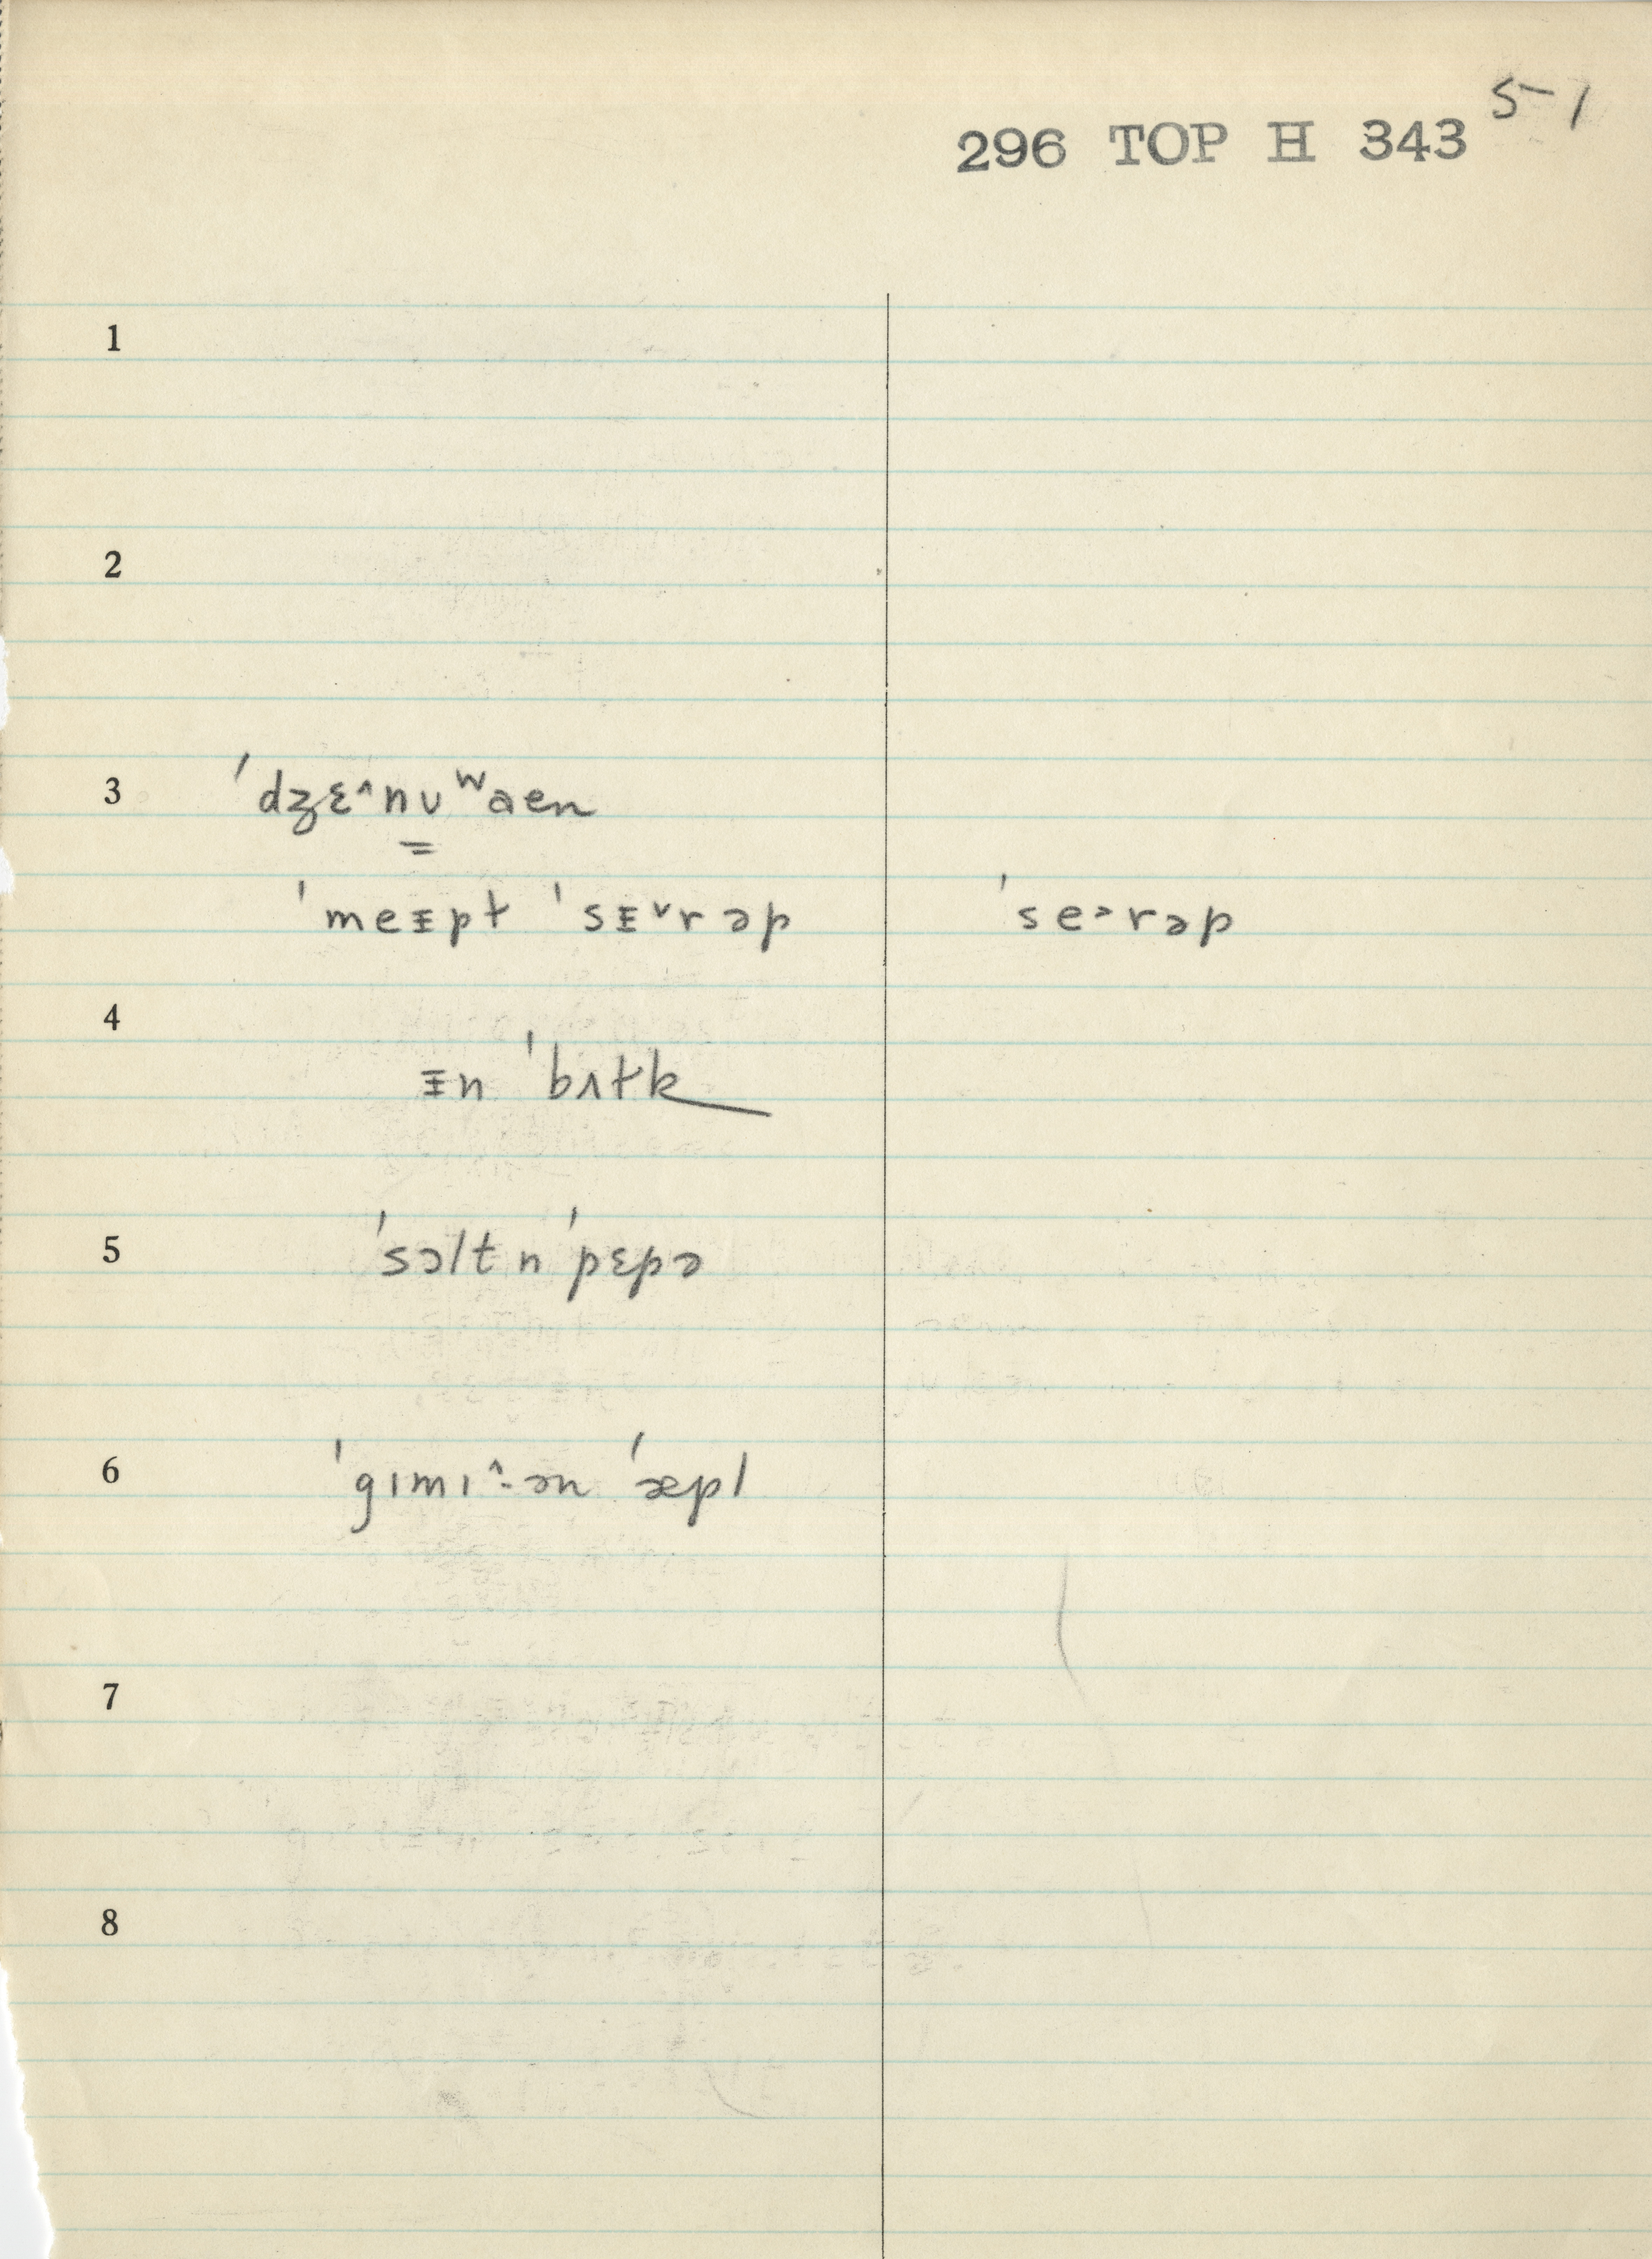 5-1
296 TOP H 343
1
2
3 ˈdʒɛ^nʊʷaen
ˈmeᵻpɫ ˈsᵻ˅rəp ˈse˃rəp
4
ᵻn ˈbʌɫk
5 ˈsɔltn ˈpɛpə
6 ˈgɪmɪ^·ən ˈæpl
7
8